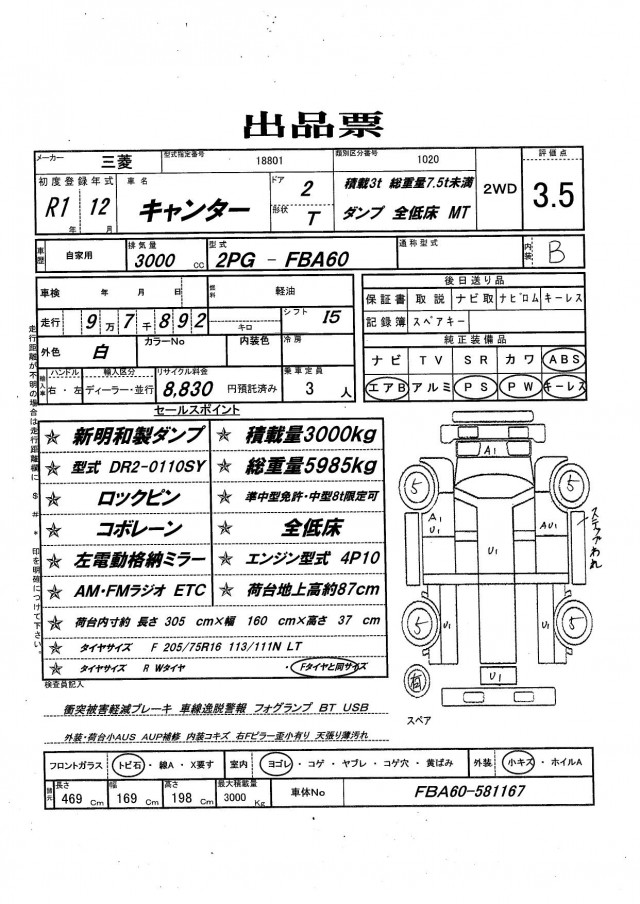 出品票
メーカー 三菱 型式指定番号 18801 類別区分番号 1020 2WD 評価点 3.5
初度登録年式 R1年 12月 車名 キャンター ドア 2 形状 T 積載3t 総重量7.5t未満
ダンプ 全低床 MT
車歴 自家用 排気量 3000 cc 型式 2PG - FBA60 通称型式 内装 B
車検 年 月 日 燃料 軽油
走行 9万7千892 キロ シフト I5
外色 白 カラーNo 内装色 冷房
輸入車 ハンドル 右・左 輸入区分 ディーラー・並行 リサイクル料金 8,830 円預託済み 乗車定員 3 人
後日送り品
保証書 取説 ナビ取 ナビロム キーレス
記録簿 スペアキー
純正装備品
ナビ TV SR カワ ABS
エアB アルミ PS PW キーレス
走行距離が不明の場合は走行距離欄に $ # * 印を明確につけて下さい。
セールスポイント
☆ 新明和製ダンプ ☆ 積載量3000kg
☆ 型式 DR2-0110SY ☆ 総重量5985kg
☆ ロックピン ☆ 準中型免許・中型8t限定可
☆ コボレーン ☆ 全低床
☆ 左電動格納ミラー ☆ エンジン型式 4P10
☆ AM・FMラジオ ETC ☆ 荷台地上高約87cm
☆ 荷台内寸約 長さ 305 cm×幅 160 cm×高さ 37 cm
☆ タイヤサイズ F 205/75R16 113/111N LT
☆ タイヤサイズ R Wタイヤ ・ Fタイヤと同サイズ
A1
5
5
A1
U1
U1
AU1
ステップわれ
5
5
U1
U1
U1
有
スペア
検査員記入
衝突被害軽減ブレーキ 車線逸脱警報 フォグランプ BT USB
外装・荷台小AUS AUP補修 内装コキズ 右Fピラー歪小有り 天張り薄汚れ
フロントガラス トビ石・線A・X要す 室内 ヨゴレ・コゲ・ヤブレ・コゲ穴・黄ばみ 外装 小キズ・ホイルA
諸元 長さ 469 Cm 幅 169 Cm 高さ 198 Cm 最大積載量 3000 Kg 車体No FBA60-581167